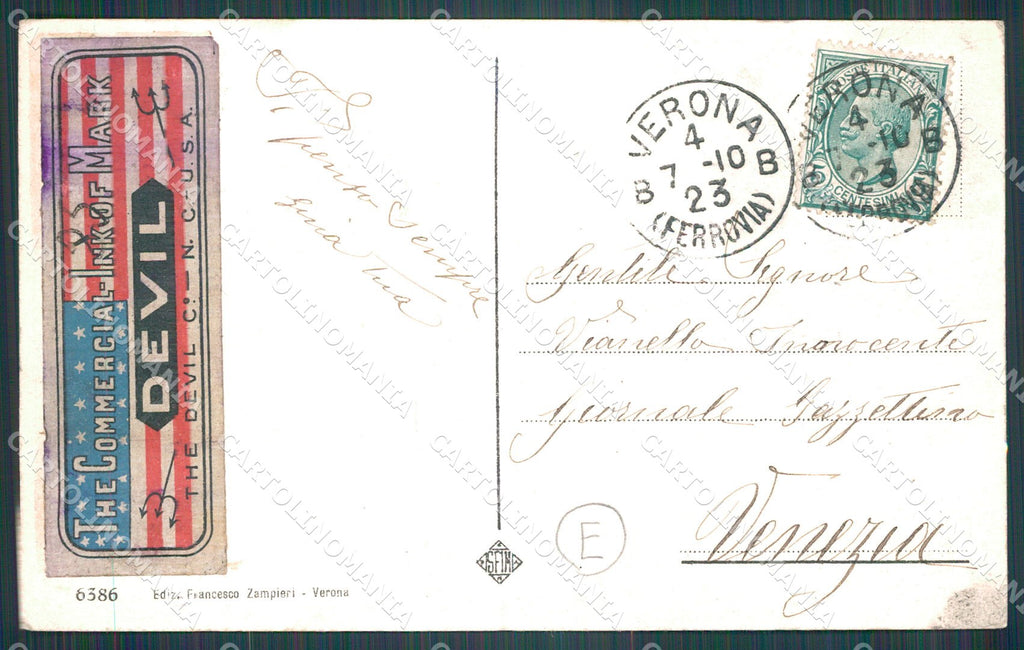 THE COMMERCIAL-INK OF MARK
DEVIL
THE DEVIL Cº — N. C. U.S.A.
sempre
tua
VERONA
4
7 -10
B B
23
(FERROVIA)
POSTE ITALIANE
CENTESIMI
VERONA
4
-10
B B
23
(FERROVIA)
Gentile Signore
Vianello Innocente
Giornale Gazzettino
Venezia
E
SFIM
6386 Ediz. Francesco Zampieri - Verona
CARTOLINOMANIA